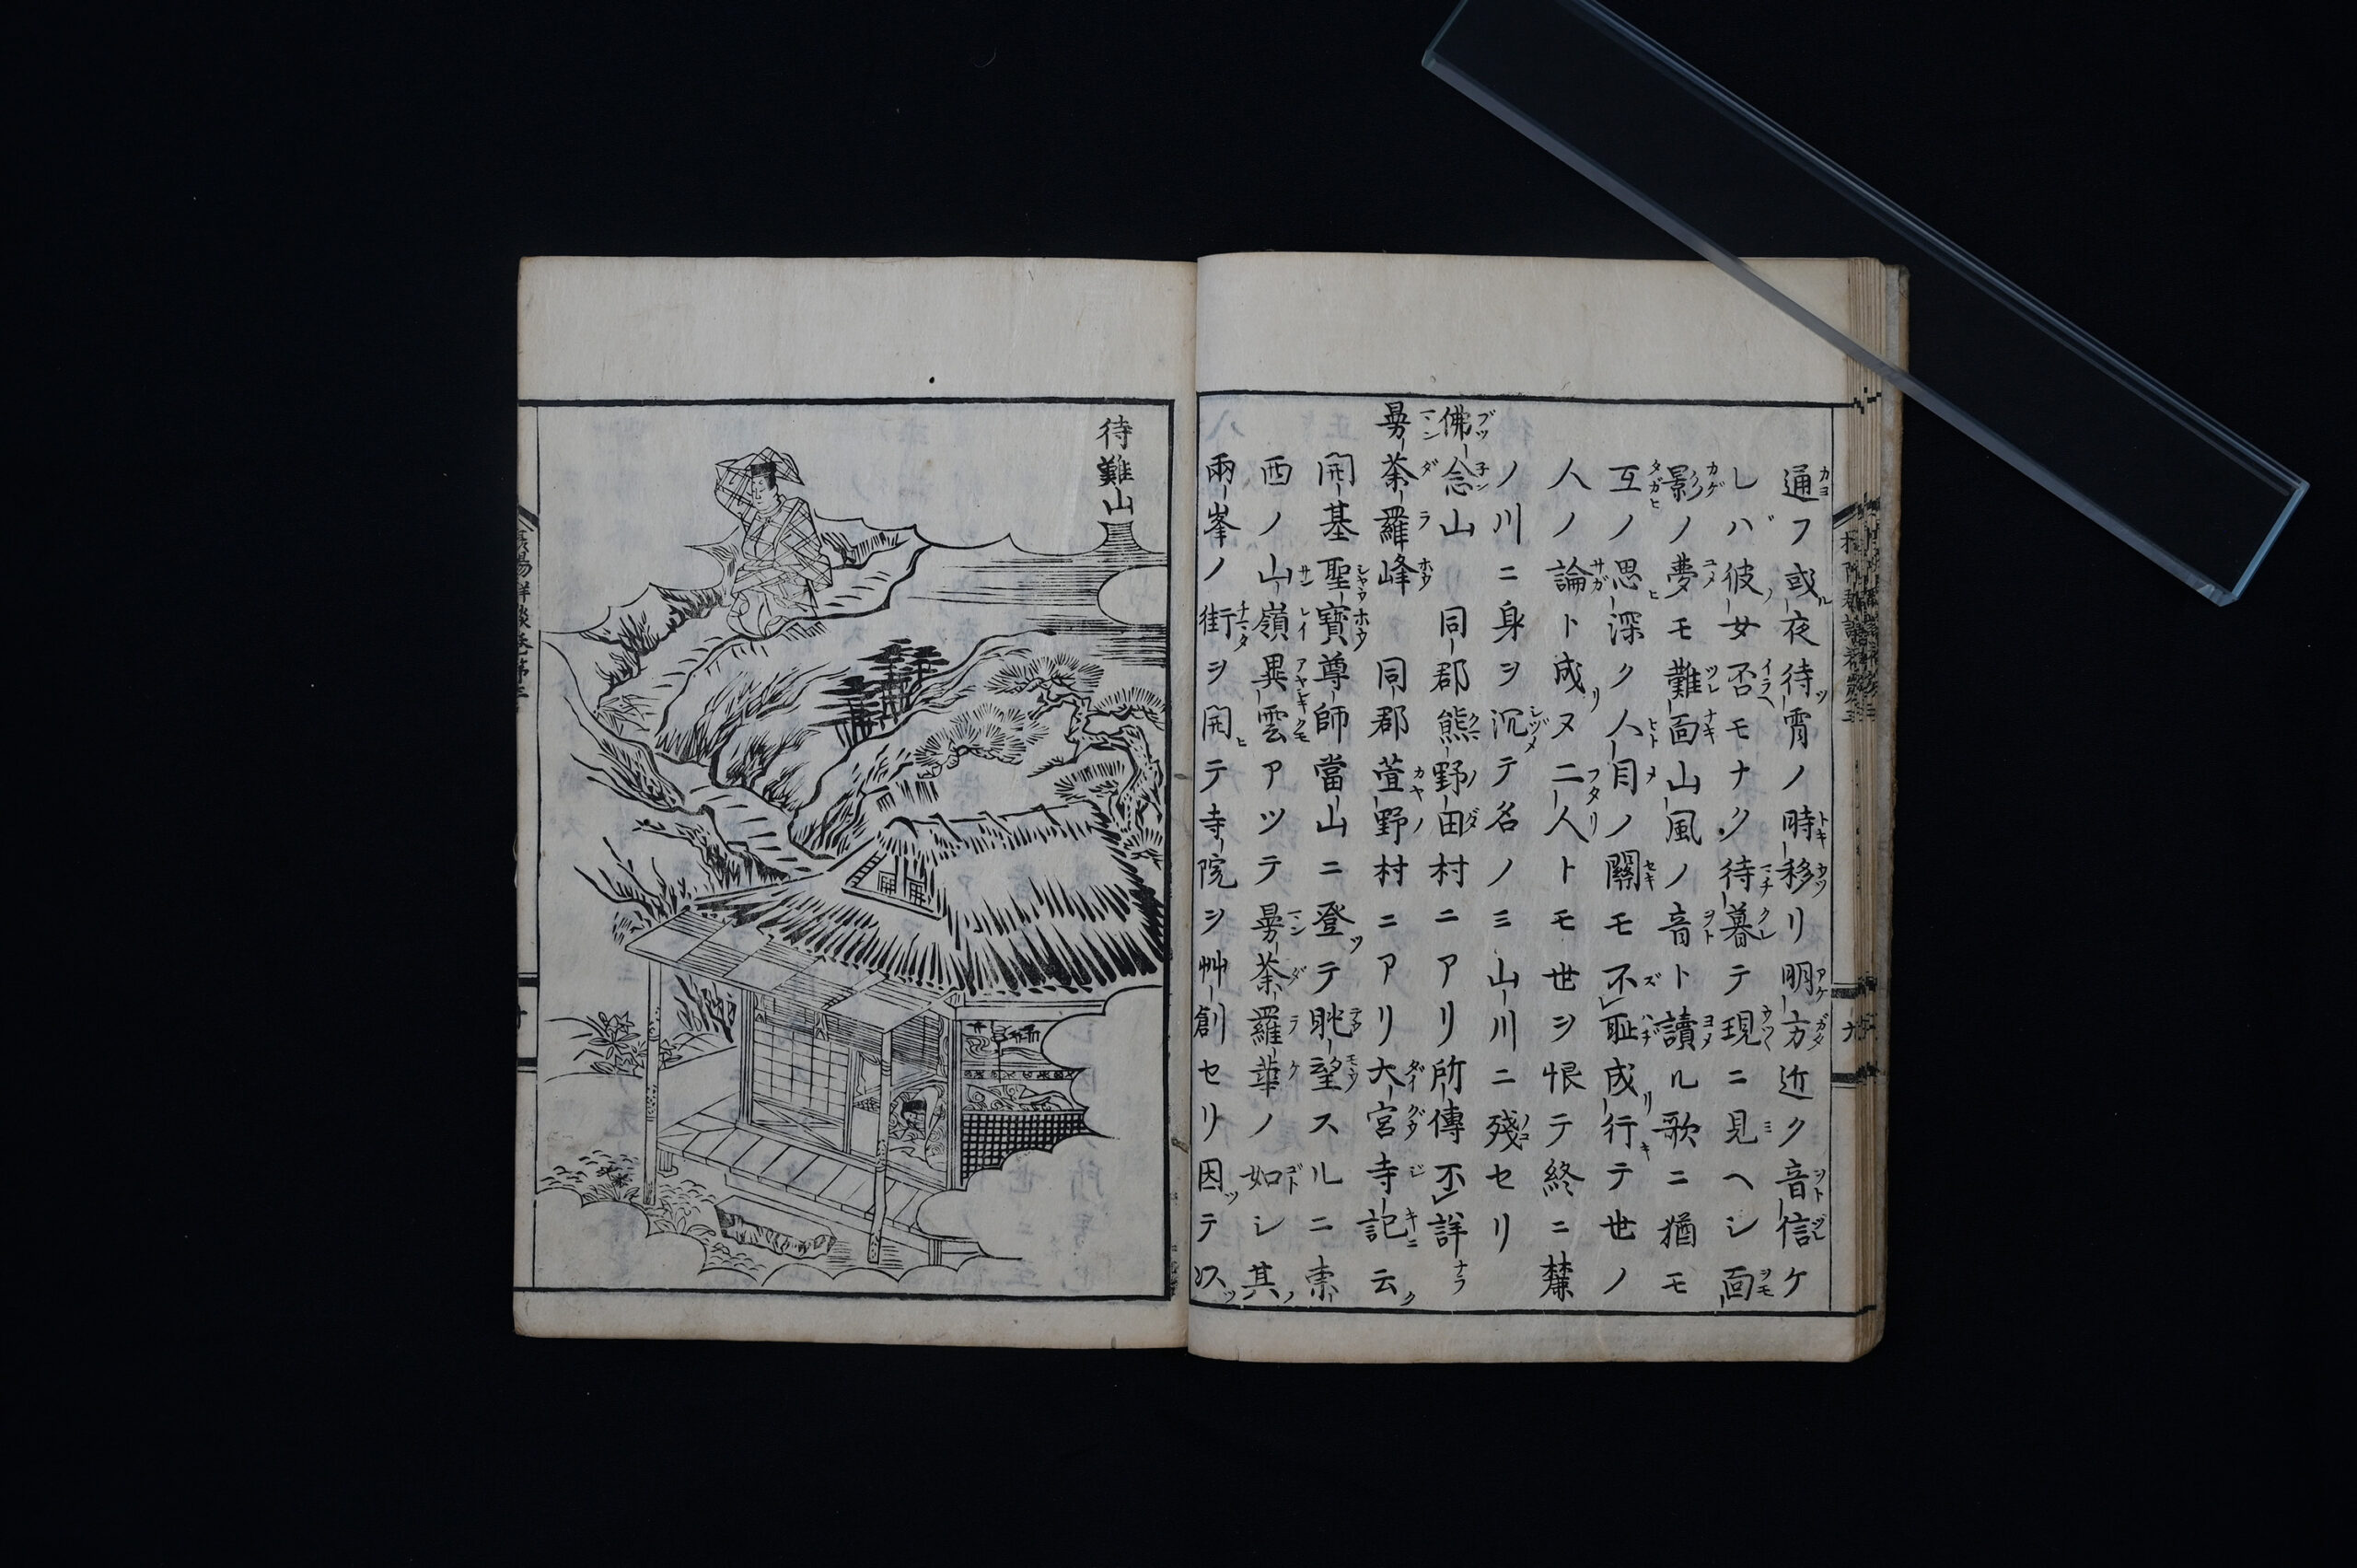 通フ或夜待宵ノ時移リ明方近ク音信ケ
レバ彼女否モナク待暮テ現ニ見ヘシ面
影ノ夢モ難面山風ノ音ト讀ル歌ニ猶モ
互ノ思深ク人目ノ關モ不耻成行テ世ノ
人ノ論ト成ヌ二人トモ世ヲ恨テ終ニ麓
ノ川ニ身ヲ沉テ名ノミ山川ニ殘セリ
佛念山 同郡熊野田村ニアリ所傳不詳
曼荼羅峰 同郡萱野村ニアリ大宮寺記云
開基聖寶尊師當山ニ登テ眺望スルニ東
西ノ山嶺異雲アツテ曼荼羅華ノ如シ其
兩峯ノ街ヲ開テ寺院ヲ艸創セリ因テ以
待難山